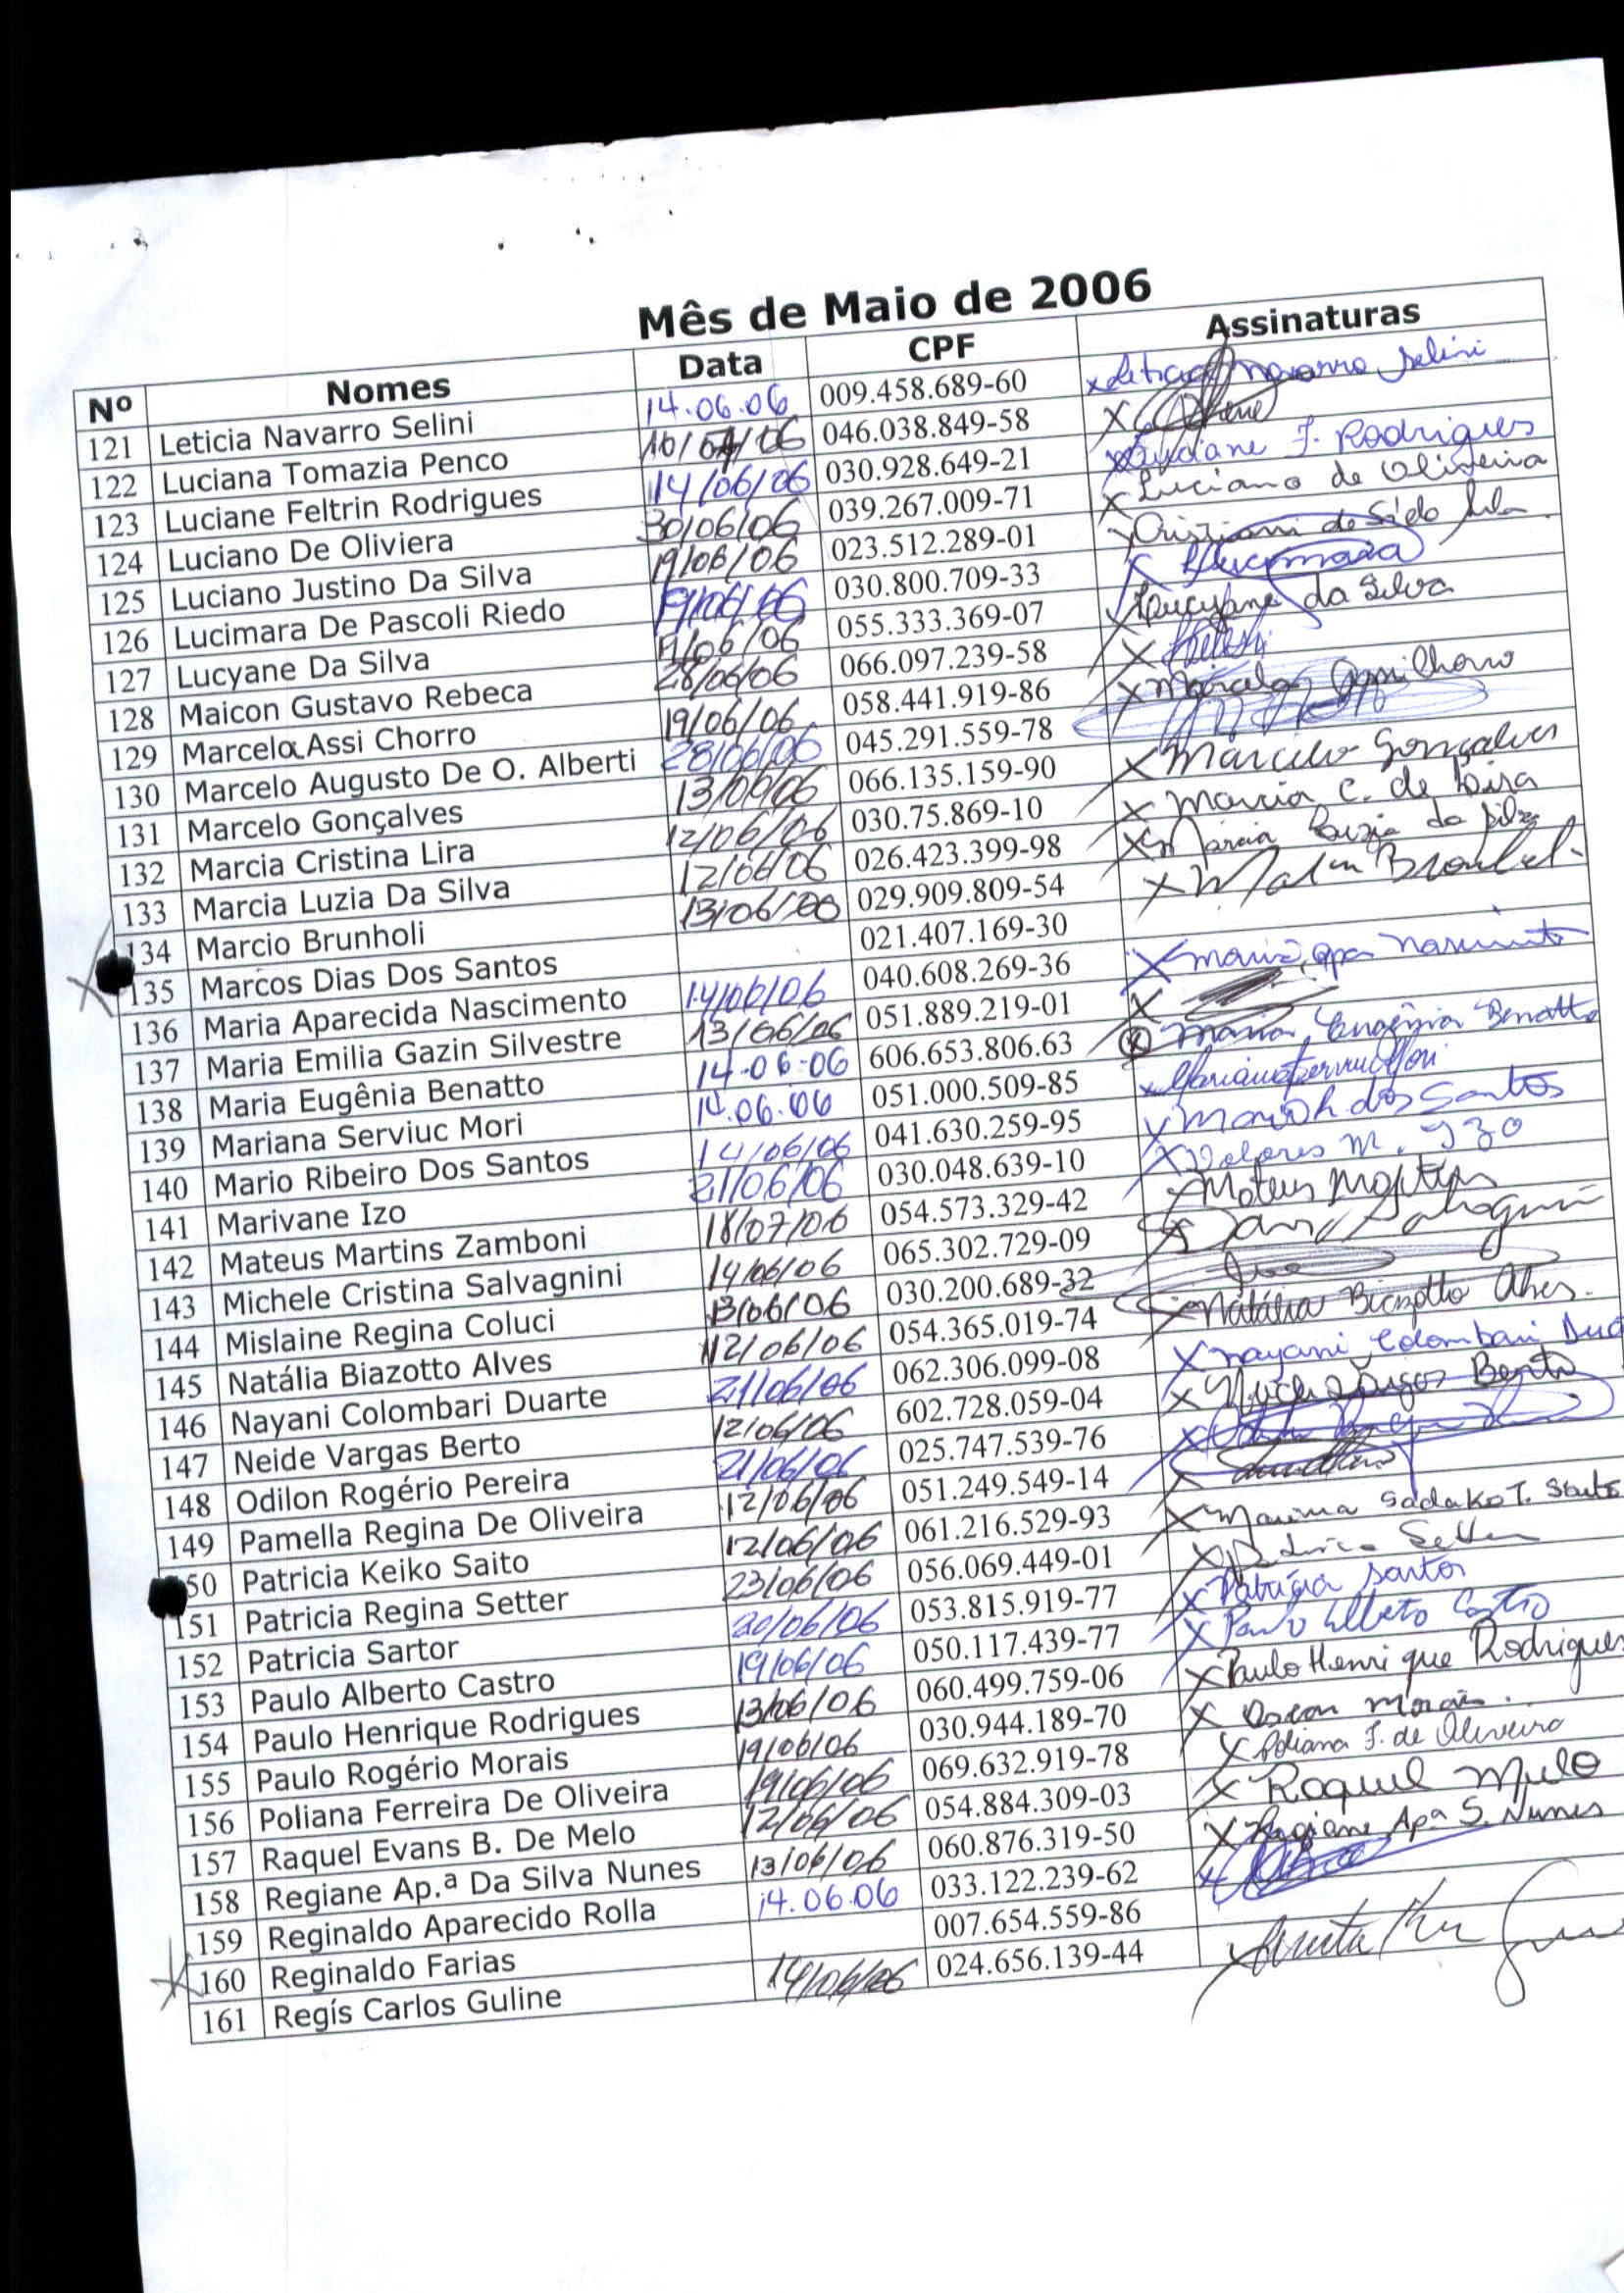 Mês de Maio de 2006
Nº Nomes Data CPF Assinaturas
121 Leticia Navarro Selini 14.06.06 009.458.689-60 x Leticia Navarro Selini
122 Luciana Tomazia Penco 046.038.849-58 x
123 Luciane Feltrin Rodrigues 14/06/06 030.928.649-21 x Luciane F. Rodrigues
124 Luciano De Oliviera 30/06/06 039.267.009-71 x Luciano de Oliveira
125 Luciano Justino Da Silva 19/06/06 023.512.289-01 x
126 Lucimara De Pascoli Riedo 19/06/06 030.800.709-33 x Lucimara
127 Lucyane Da Silva 055.333.369-07 x Lucyane da Silva
128 Maicon Gustavo Rebeca 28/06/06 066.097.239-58 x
129 Marcela Assi Chorro 19/06/06 058.441.919-86 x Marcela Assi Chorro
130 Marcelo Augusto De O. Alberti 28/06/06 045.291.559-78
131 Marcelo Gonçalves 13/06/06 066.135.159-90 x Marcelo Gonçalves
132 Marcia Cristina Lira 12/06/06 030.75.869-10 x Marcia C. de Lira
133 Marcia Luzia Da Silva 12/06/06 026.423.399-98 x Marcia Luzia da Silva
134 Marcio Brunholi 13/06/06 029.909.809-54 x
135 Marcos Dias Dos Santos 021.407.169-30
136 Maria Aparecida Nascimento 14/06/06 040.608.269-36 x Maria Apa Nascimento
137 Maria Emilia Gazin Silvestre 13/06/06 051.889.219-01 x
138 Maria Eugênia Benatto 14-06-06 606.653.806.63 x Maria Eugênia Benatto
139 Mariana Serviuc Mori 14.06.06 051.000.509-85 x
140 Mario Ribeiro Dos Santos 14/06/06 041.630.259-95 x Mario R. dos Santos
141 Marivane Izo 21/06/06 030.048.639-10 x Dolores M. Izo
142 Mateus Martins Zamboni 18/07/06 054.573.329-42 x Mateus Martins
143 Michele Cristina Salvagnini 14/06/06 065.302.729-09 x
144 Mislaine Regina Coluci 13/06/06 030.200.689-32
145 Natália Biazotto Alves 12/06/06 054.365.019-74 x Natália Biazotto Alves.
146 Nayani Colombari Duarte 21/06/06 062.306.099-08 x Nayani Colombari
147 Neide Vargas Berto 12/06/06 602.728.059-04 x Neide Vargas Berto
148 Odilon Rogério Pereira 21/06/06 025.747.539-76 x
149 Pamella Regina De Oliveira 12/06/06 051.249.549-14 x
150 Patricia Keiko Saito 12/06/06 061.216.529-93 x Marina Sadako T. Saito
151 Patricia Regina Setter 23/06/06 056.069.449-01 x Patricia Setter
152 Patricia Sartor 20/06/06 053.815.919-77 x Patrícia Sartor
153 Paulo Alberto Castro 19/06/06 050.117.439-77 x Paulo Alberto Castro
154 Paulo Henrique Rodrigues 13/06/06 060.499.759-06 x Paulo Henrique Rodrigues
155 Paulo Rogério Morais 19/06/06 030.944.189-70 x Oscar Morais.
156 Poliana Ferreira De Oliveira 19/06/06 069.632.919-78 x Poliana F. de Oliveira
157 Raquel Evans B. De Melo 12/06/06 054.884.309-03 x Raquel Melo
158 Regiane Ap.ª Da Silva Nunes 13/06/06 060.876.319-50 x Regiane Apª S. Nunes
159 Reginaldo Aparecido Rolla 14.06.06 033.122.239-62 x
160 Reginaldo Farias 007.654.559-86
161 Regís Carlos Guline 14/06/06 024.656.139-44 x